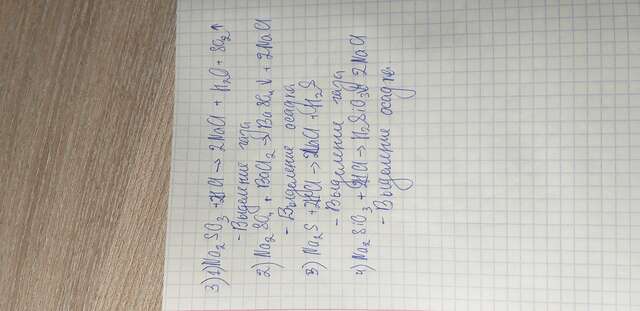 3) 1) Na2SO3 + 2HCl → 2NaCl + H2O + SO2↑
- Выделение газа
2) Na2SO4 + BaCl2 → BaSO4↓ + 2NaCl
- Выделение осадка
3) Na2S + 2HCl → 2NaCl + H2S
- Выделение газа
4) Na2SiO3 + 2HCl → H2SiO3↓ + 2NaCl
- Выделение осадка.